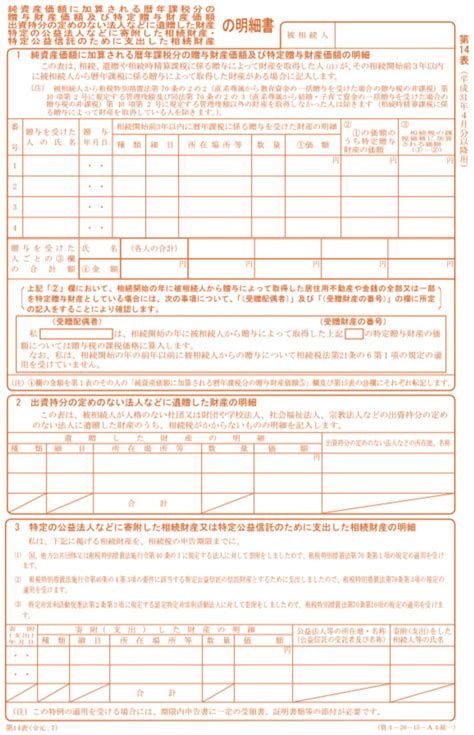 純資産価額に加算される暦年課税分の
贈与財産価額及び特定贈与財産価額
出資持分の定めのない法人などに遺贈した財産
特定の公益法人などに寄附した相続財産・
特定公益信託のために支出した相続財産
の明細書
被相続人
第14表(平成31年4月分以降用)
1 純資産価額に加算される暦年課税分の贈与財産価額及び特定贈与財産価額の明細
この表は、相続、遺贈や相続時精算課税に係る贈与によって財産を取得した人(注)が、その相続開始前3年以内
に被相続人から暦年課税に係る贈与によって取得した財産がある場合に記入します。
(注) 被相続人から租税特別措置法第70条の2の2(直系尊属から教育資金の一括贈与を受けた場合の贈与税の非課税)第
10項第2号に規定する管理残額及び同法第70条の2の3(直系尊属から結婚・子育て資金の一括贈与を受けた場合の
贈与税の非課税)第10項第2号に規定する管理残額以外の財産を取得しなかった人は除きます(相続時精算課税に
係る贈与によって財産を取得している人を除きます。)。
番号
贈与を受けた人の氏名
贈与年月日
相続開始前3年以内に暦年課税に係る贈与を受けた財産の明細
種類 細目 所在場所等 数量 ①価額
②①の価額のうち特定贈与財産の価額
③相続税の課税価格に加算される価額(①-②)
1 ・・ 円 円 円
2 ・・
3 ・・
4 ・・
贈与を受けた人ごとの③欄の合計額
氏名 (各人の合計)
④金額 円 円 円 円 円
上記「②」欄において、相続開始の年に被相続人から贈与によって取得した居住用不動産や金銭の全部又は一部
を特定贈与財産としている場合には、次の事項について、「(受贈配偶者)」及び「(受贈財産の番号)」の欄に所定
の記入をすることにより確認します。
(受贈配偶者) (受贈財産の番号)
私 は、相続開始の年に被相続人から贈与によって取得した上記 の特定贈与財産の価
額については贈与税の課税価格に算入します。
なお、私は、相続開始の年の前年以前に被相続人からの贈与について相続税法第21条の6第1項の規定の適
用を受けていません。
(注) ④欄の金額を第1表のその人の「純資産価額に加算される暦年課税分の贈与財産価額⑤」欄及び第15表の㊲欄にそれぞれ転記します。
2 出資持分の定めのない法人などに遺贈した財産の明細
この表は、被相続人が人格のない社団又は財団や学校法人、社会福祉法人、宗教法人などの出資持分の定め
のない法人に遺贈した財産のうち、相続税がかからないものの明細を記入します。
遺贈した財産の明細
種類 細目 所在場所等 数量 価額
出資持分の定めのない法人などの所在地、名称
円
合計
3 特定の公益法人などに寄附した相続財産又は特定公益信託のために支出した相続財産の明細
私は、下記に掲げる相続財産を、相続税の申告期限までに、
(1) 国、地方公共団体又は租税特別措置法施行令第40条の3に規定する法人に対して寄附をしましたので、租税特別措置法第70条第1項の規定の適用を受けま
す。
(2) 租税特別措置法施行令第40条の4第3項の要件に該当する特定公益信託の信託財産とするために支出しましたので、租税特別措置法第70条第3項の規定の適
用を受けます。
(3) 特定非営利活動促進法第2条第3項に規定する認定特定非営利活動法人に対して寄附をしましたので、租税特別措置法第70条第10項の規定の適用を受けま
す。
寄附(支出)年月日
寄附(支出)した財産の明細
種類 細目 所在場所等 数量 価額
公益法人等の所在地・名称(公益信託の受託者及び名称)
寄附(支出)をした相続人等の氏名
・・ 円
・・
合計
(注) この特例の適用を受ける場合には、期限内申告書に一定の受領書、証明書類等の添付が必要です。
第14表(令元.7)
(資4-20-15-A4統一)